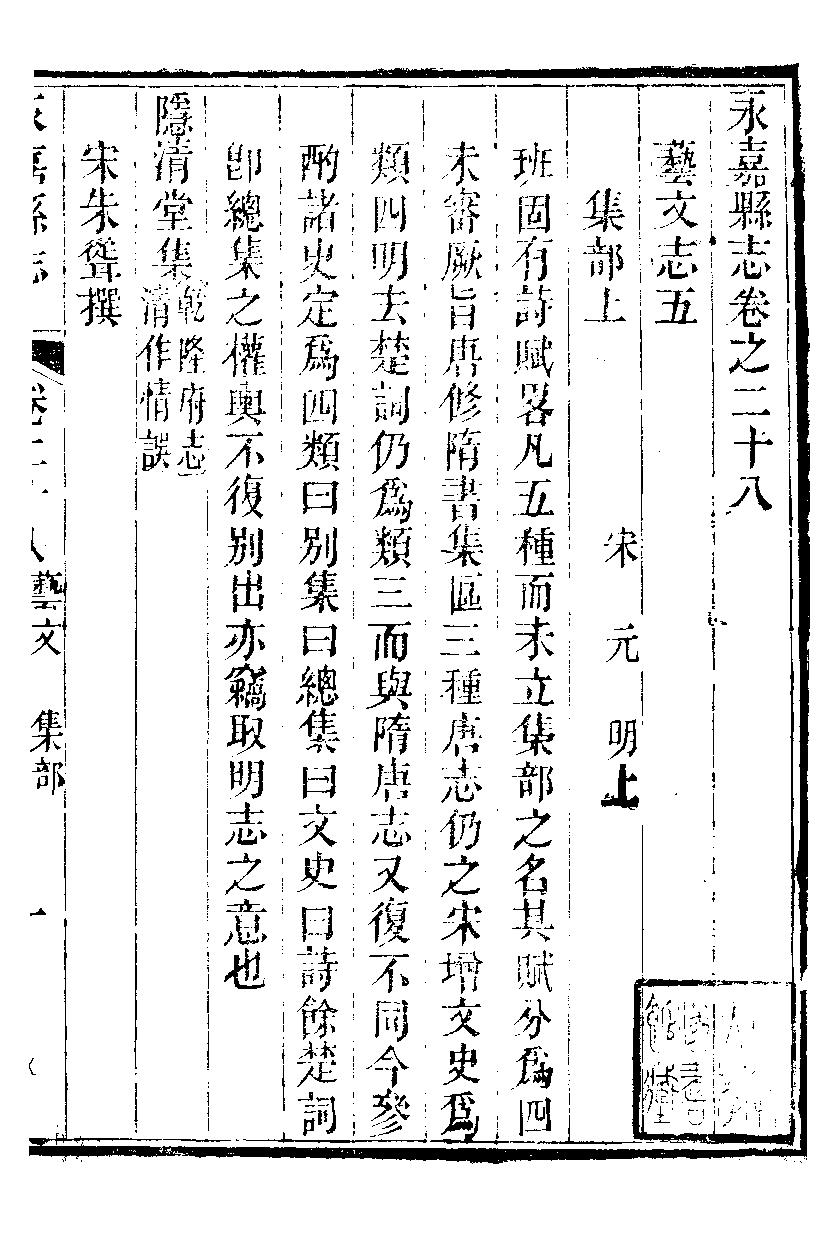 永嘉縣志卷之二十八
藝文志五
集部上 宋 元 明上
班固有詩賦畧凡五種而未立集部之名其賦分爲四
未審厥旨唐修隋書集區三種唐志仍之宋增文史爲
類四明去楚詞仍爲類三而與隋唐志又復不同今參
酌諸史定爲四類曰別集曰總集曰文史曰詩餘楚詞
卽總集之權輿不復別出亦竊取明志之意也
隱清堂集 乾隆府志
清作情誤
宋朱聳撰
永嘉縣志 卷二十八 藝文 集部 一